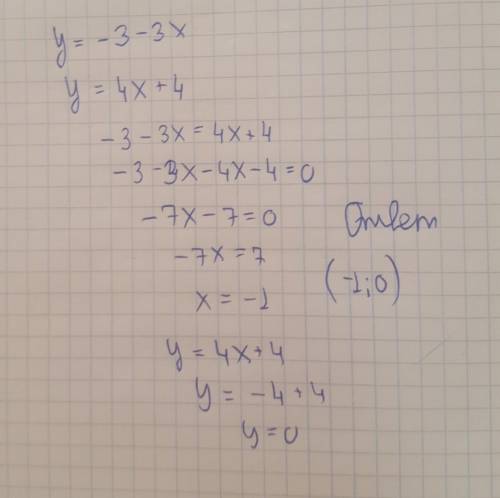 y = -3 - 3x
y = 4x + 4
-3 - 3x = 4x + 4
-3 - 3x - 4x - 4 = 0
-7x - 7 = 0
-7x = 7
x = -1
y = 4x + 4
y = -4 + 4
y = 0
Ответ
(-1; 0)